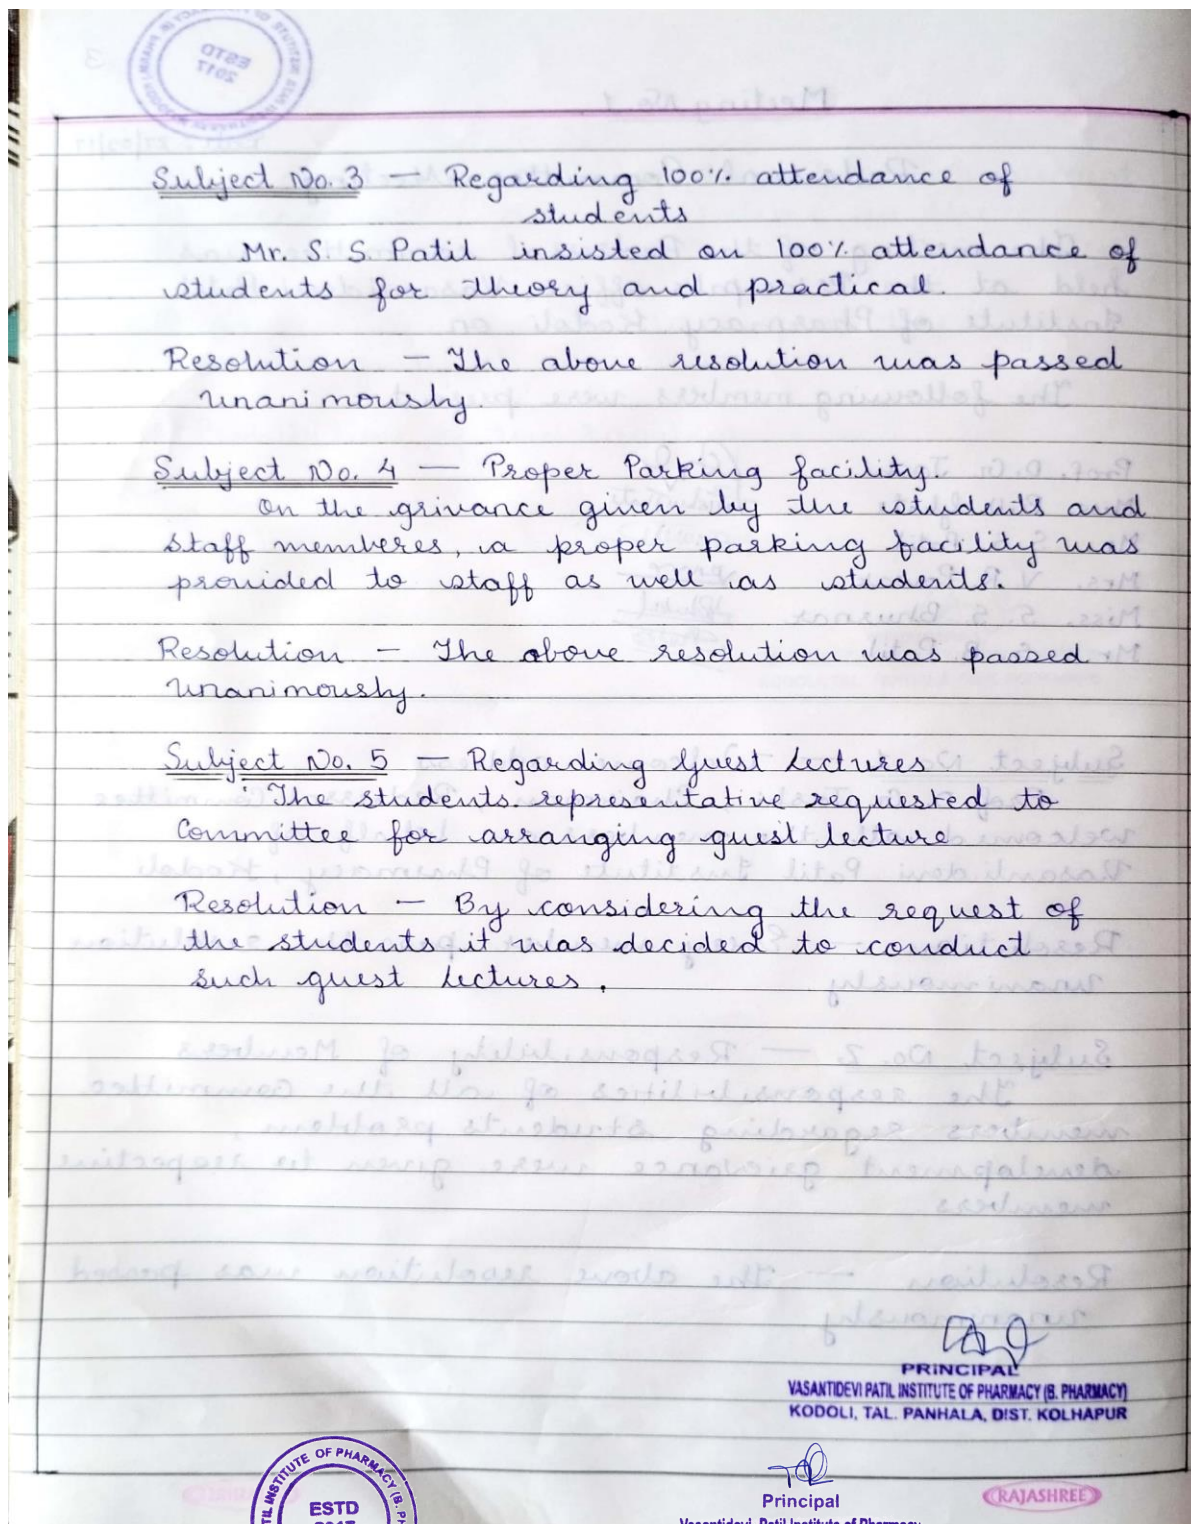 Subject No. 3 — Regarding 100% attendance of
students
Mr. S. S. Patil insisted on 100% attendance of
students for theory and practical.
Resolution — The above resolution was passed
unanimously.
Subject No. 4 — Proper Parking facility.
On the grivance given by the students and
staff memberes, a proper parking facility was
provided to staff as well as students.
Resolution — The above resolution was passed
unanimously.
Subject No. 5 — Regarding Guest Lectures
The students representative requested to
Committee for arranging guest lecture
Resolution — By considering the request of
the students it was decided to conduct
such guest lectures.
PRINCIPAL
VASANTIDEVI PATIL INSTITUTE OF PHARMACY (B. PHARMACY)
KODOLI, TAL. PANHALA, DIST. KOLHAPUR
INSTITUTE OF PHARMACY (B.
ESTD
Principal
Vasantidevi Patil Institute of Pharmacy
RAJASHREE